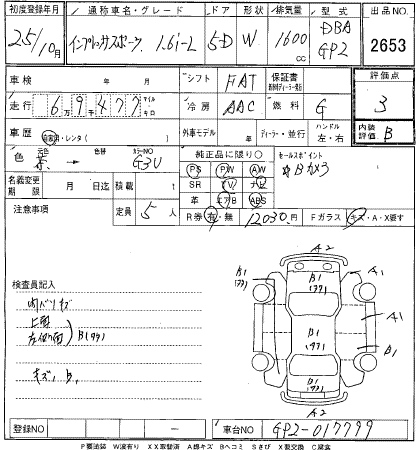 初度登録年月 通称車名・グレード ドア 形状 排気量 型式 出品NO
25/10月 インプレッサスポーツ 1.6i-L 5D W 1600cc DBA GP2 2653
車検 年 月 シフト FAT 保証書 評価点
走行 6万9千477 マイル キロ 冷房 AAC 燃料 G 3
車歴 自家用・レンタ( ) 外車モデル 年 ディーラー・並行 ハンドル 左・右 内装評価 B
色 元色 茶 → 色替 カラーNO G3U 純正品に限り○ セールスポイント
PS PW AW ☆Bカメラ
名義変更期限 月 日迄 積載 t SR TV ナビ
革 エアB ABS
注意事項 定員 5人 R券 有・無 12030円 Fガラス キズ・A・X要す
A2
検査員記入 B1(77) B1(77) A1
内バリキズ
上面
左右側面 ) B(77) B1(77) A1
キズ、B、 B1(77)
A2
登録NO - 車台NO GP2-017779
P要塗装 W波有り XX取替済 A擦キズ Bヘコミ Sさび X要交換 C腐食